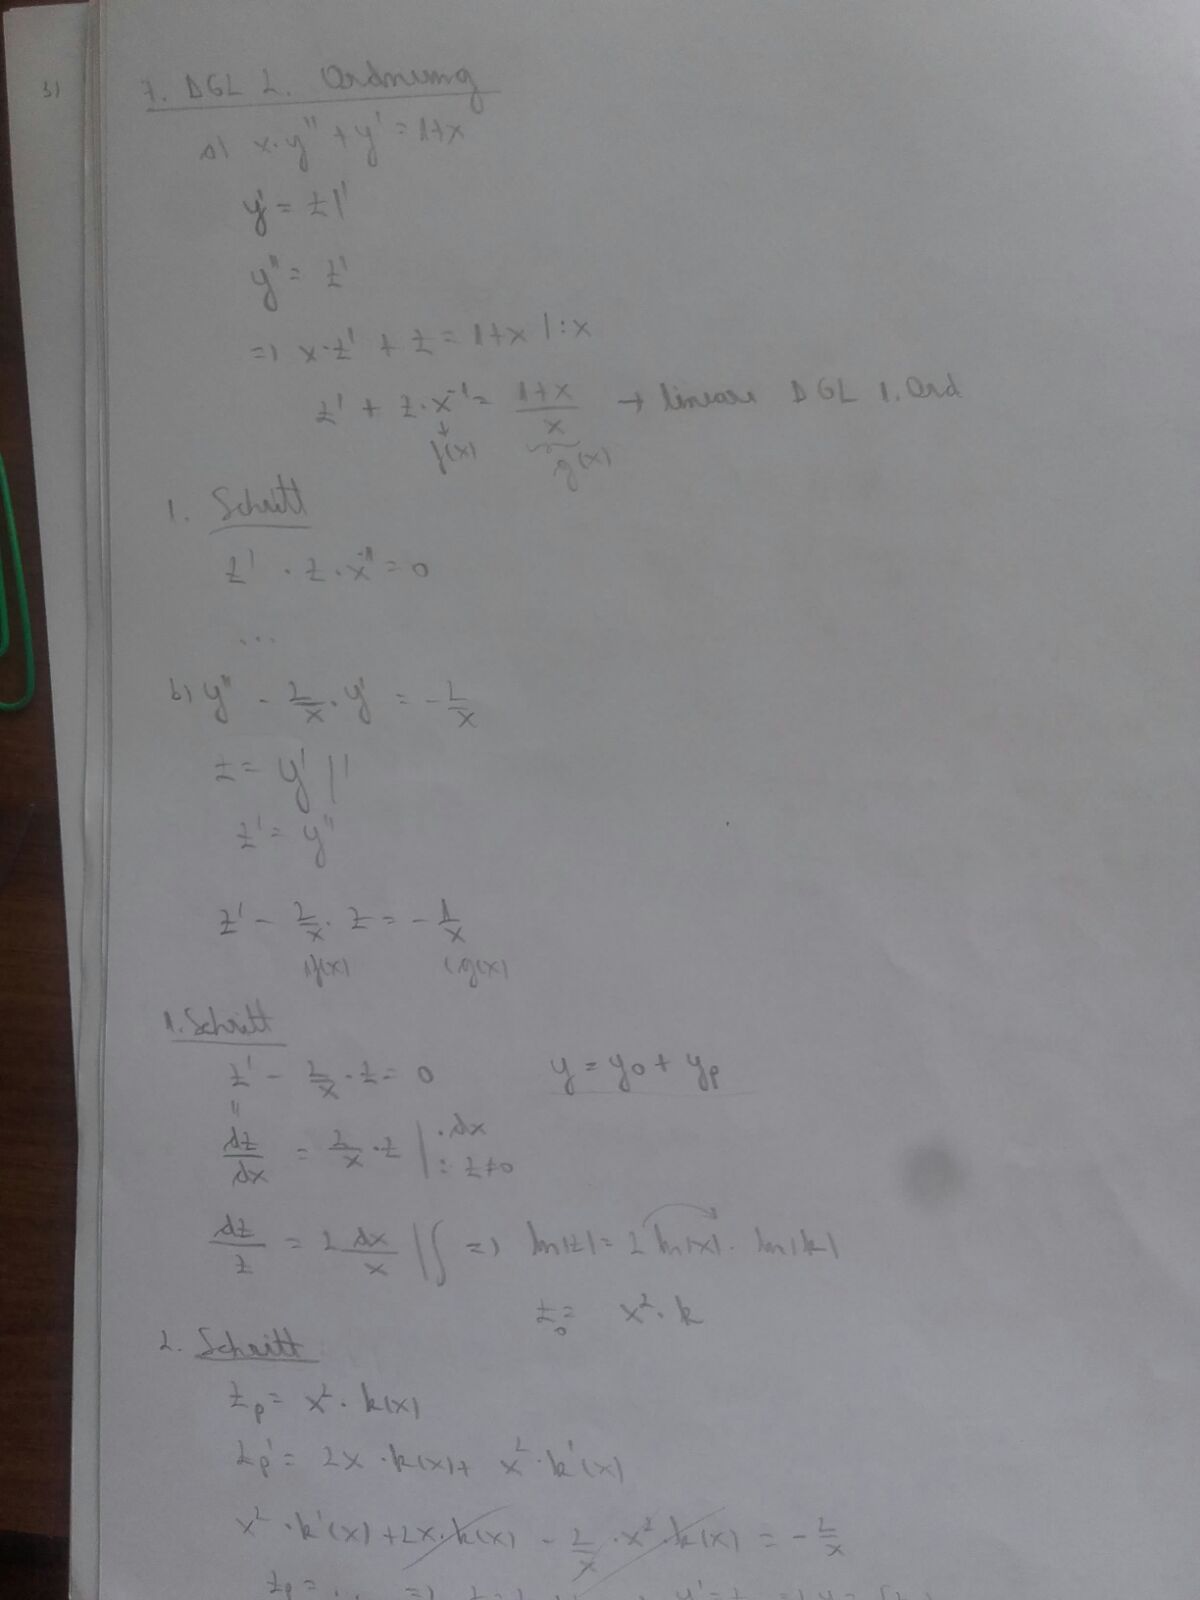 3)
7. DGL 2. Ordnung
a) x·y'' + y' = 1+x
y' = z |'
y'' = z'
=) x·z' + z = 1+x |:x
z' + z·x⁻¹ = (1+x)/x → lineare DGL 1. Ord
f(x) g(x)
1. Schritt
z' · z · x⁻¹ = 0
...
b) y'' - 2/x · y' = - 2/x
z = y' |'
z' = y''
z' - 2/x · z = - 1/x
f(x) g(x)
1. Schritt
z' - 2/x · z = 0 y = y₀ + yₚ
"
dz/dx = 2/x · z | ·dx : z≠0
dz/z = 2 dx/x |∫ =) ln|z| = 2 ln|x| · ln|k|
z₀ = x² · k
2. Schritt
zₚ = x² · k(x)
zₚ' = 2x · k(x) + x² · k'(x)
x² · k'(x) + 2x · k(x) - 2/x · x² · k(x) = - 2/x
zₚ = ... =)